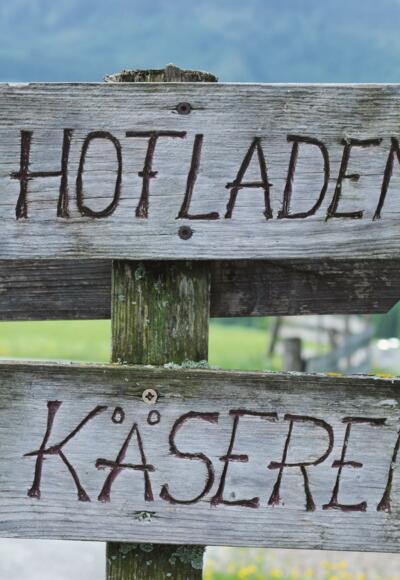 HOFLADEN
KÄSEREI